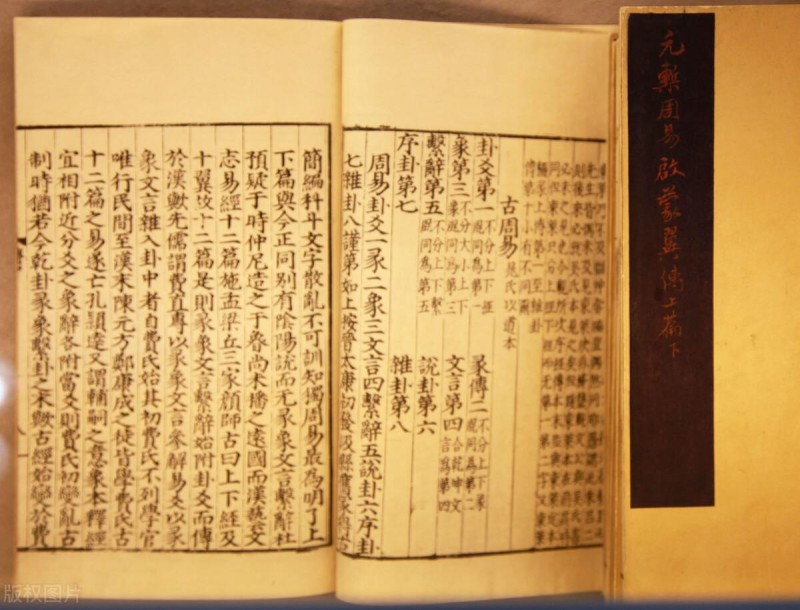 元槧周易啟蒙翼傳上篇下
古周易 晁氏以道本
卦爻第一 不分上下經既同為第一 彖傳二 不分上下彖既同為第二
象第三 不分大小上下象既同為第三 文言第四 合乾坤文言為第四
繫辭第五 不分上下既同為第五 說卦第六
序卦第七 雜卦第八
周易卦爻一彖二象三文言四繫辭五說卦六序卦
七雜卦八謹第如上按晉太康初發汲縣舊冢得古
簡編科斗文字散亂不可訓知獨周易最為明了上
下篇與今正同別有陰陽說而无彖象文言繫辭杜
預疑于時仲尼造之于魯尚未播之遠國而漢藝文
志易經十二篇施孟梁丘三家顏師古曰上下經及
十翼故十二篇是則彖象文言繫辭始附卦爻而傳
於漢歟先儒謂費直專以彖象文言參解易爻以彖
象文言雜入卦中者自費氏始其初費氏不列學官
唯行民間至漢末陳元方鄭康成之徒皆學費氏古
十二篇之易遂亡孔穎達又謂輔嗣之意象本釋經
宜相附近分爻之象辭各附當爻則費氏初變亂古
制時猶若今乾卦彖象繫卦之末歟古經始變於費
版权图片